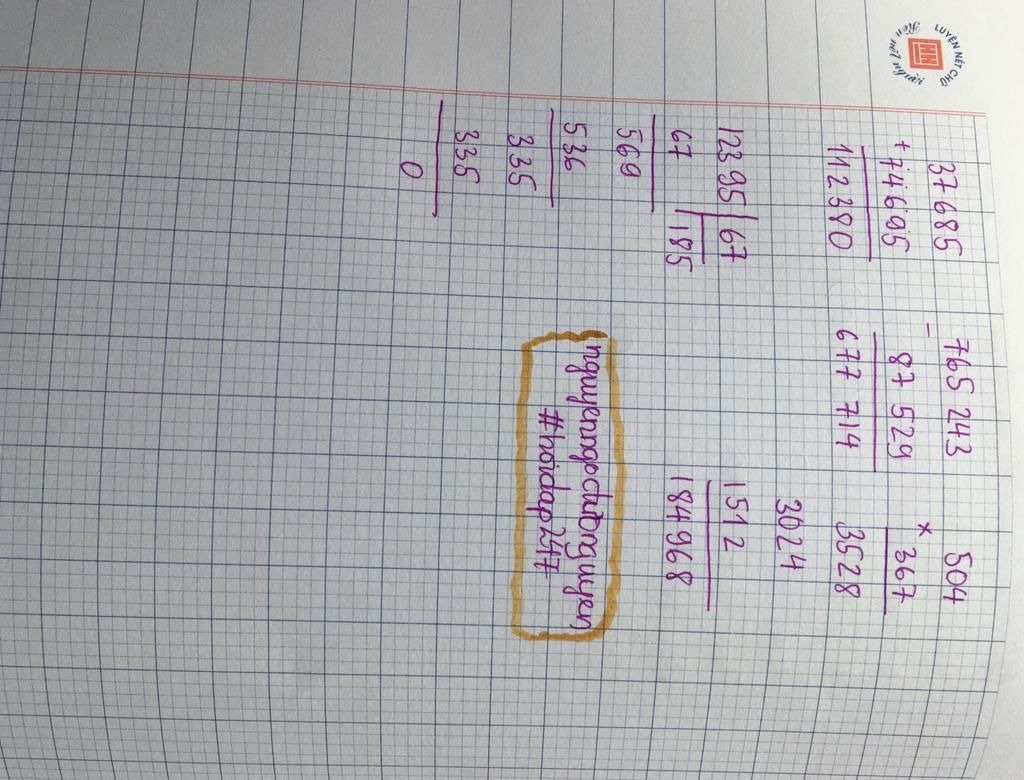 LUYỆN NÉT CHỮ
HN
Rèn nết người
37685
+ 74695
112380
765 243
-
87 529
677 714
504
×
367
3528
3024
1512
184 968
12395 67
67 185
569
536
335
335
0
#hoidap247